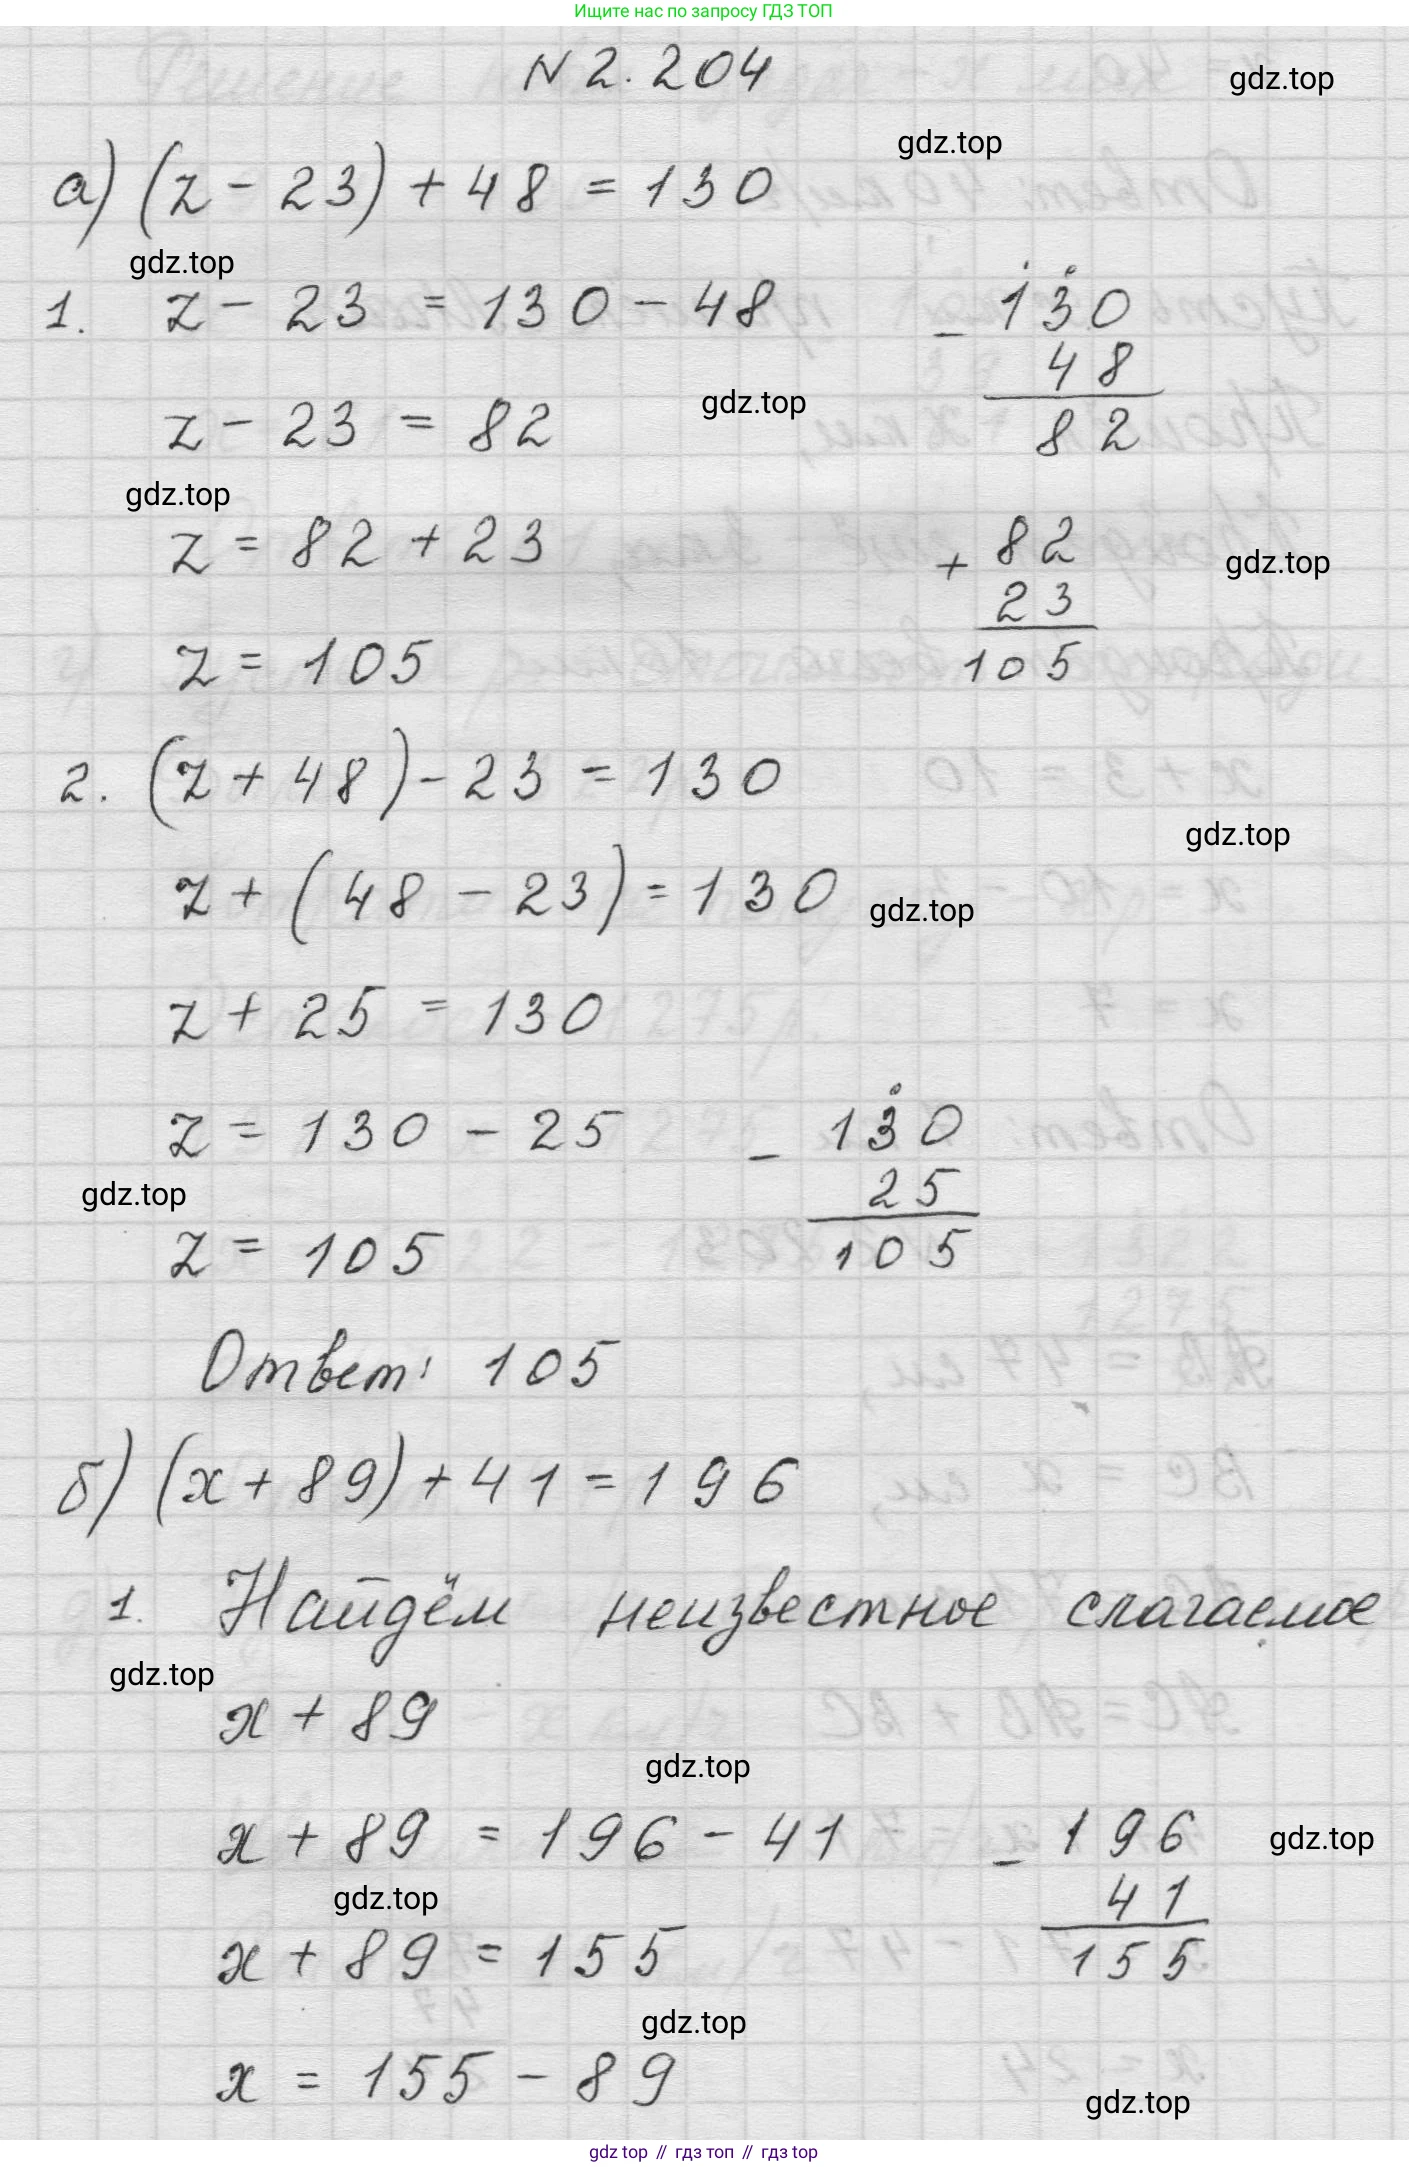 Ищите нас по запросу ГДЗ ТОП
N 2.204
gdz.top
gdz.top
а) (z - 23) + 48 = 130
gdz.top
1. z - 23 = 130 - 48
- 130
48
82
z - 23 = 82
gdz.top
gdz.top
z = 82 + 23
+ 82
23
105
gdz.top
z = 105
2. (z + 48) - 23 = 130
gdz.top
z + (48 - 23) = 130
gdz.top
z + 25 = 130
z = 130 - 25
- 130
25
105
gdz.top
z = 105
Ответ: 105
б) (x + 89) + 41 = 196
1. Найдём неизвестное слагаемое
gdz.top
x + 89
gdz.top
x + 89 = 196 - 41
- 196
41
155
gdz.top
gdz.top
x + 89 = 155
gdz.top
x = 155 - 89
gdz.top
gdz top // гдз топ // гдз top